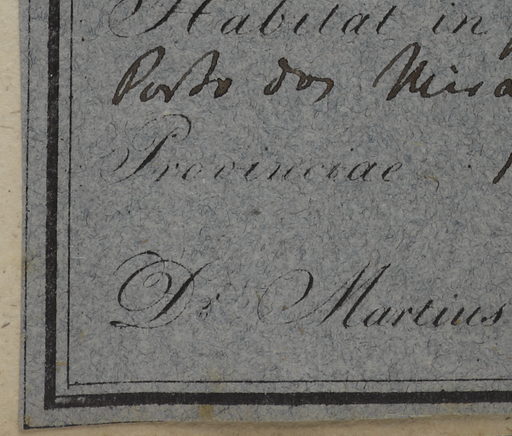 Habitat in
Porto dos
Provinciae
Dr Martius